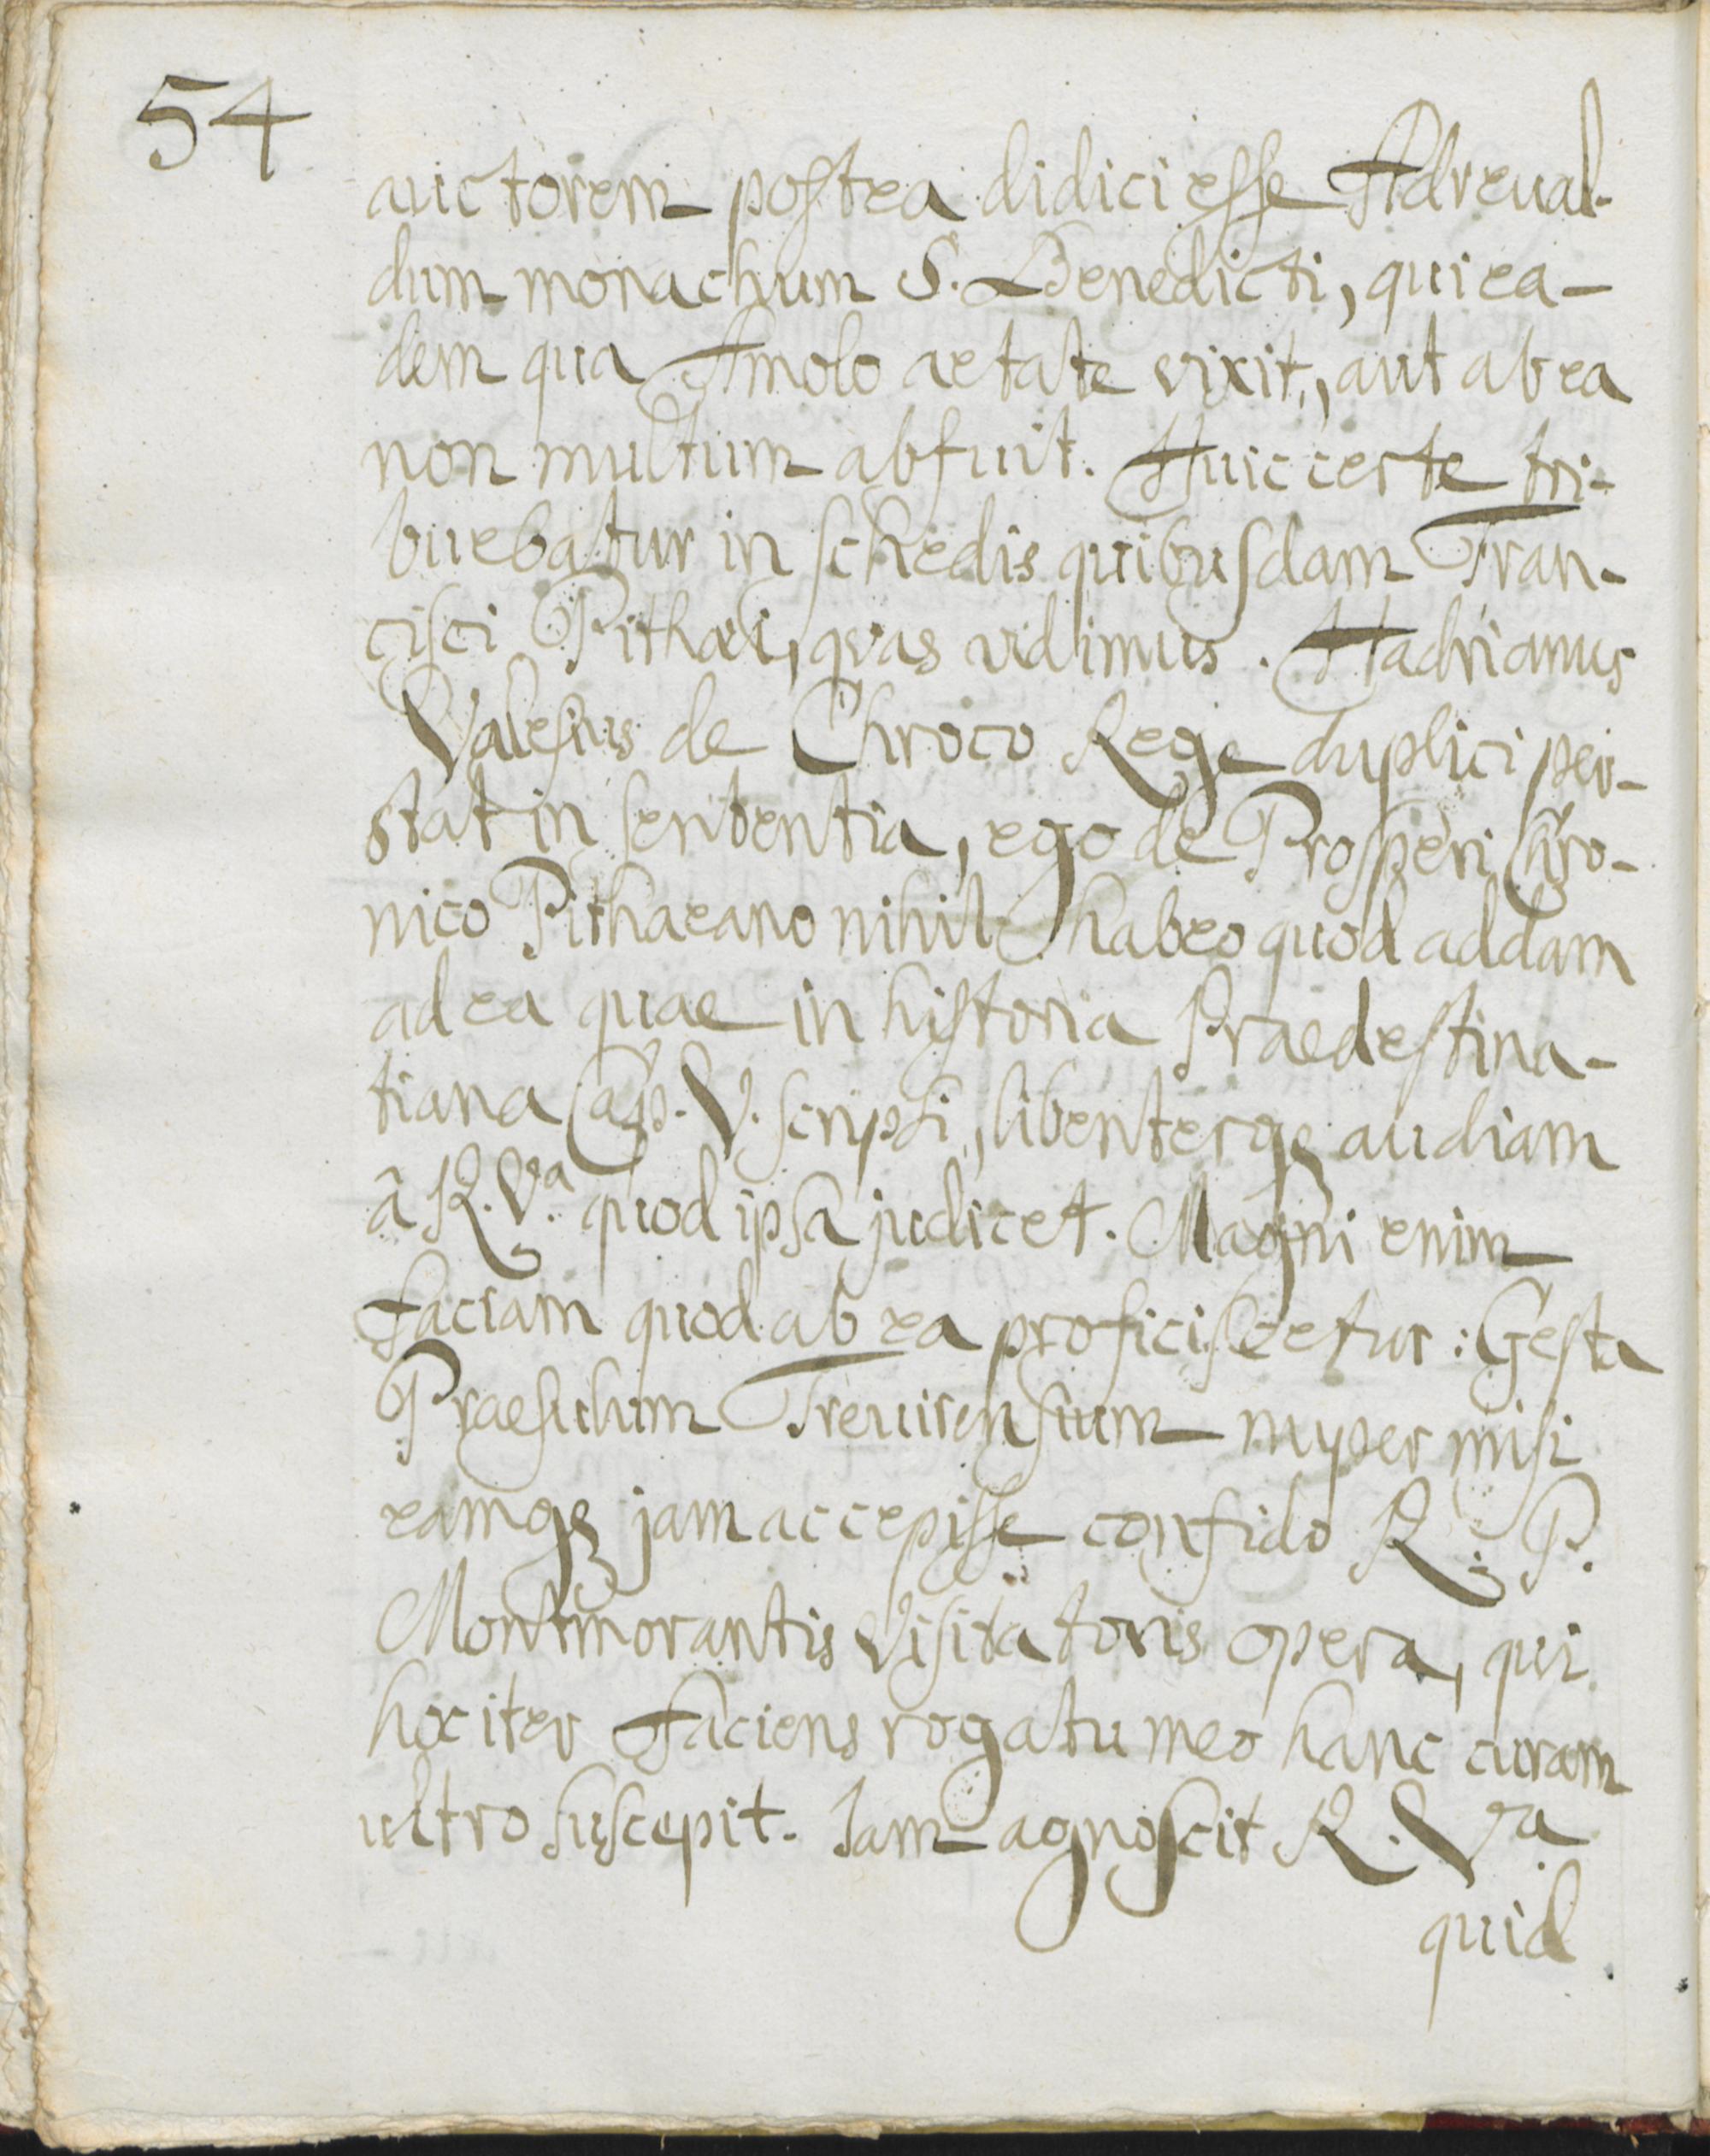 54
auctorem postea didici esse Adreual-
dum monachum S. Benedicti, qui ea-
dem qua Amolo aetate vixit, aut ab ea
non multum abfuit. Huic certe tri-
buebatur in schedis quibusdam Fran-
cisci Pithaei, quas vidimus. Hadrianus
Valesius de Chroco Rege duplici per-
stat in sententia, ego de Prosperi Chro-
nico Pithaeano nihil habeo quod addam
ad ea quae in historia Praedestina-
tiana Cap. V. scripsi, libenterq; audiam
â R. Vᵃ. quod ipsa judicet. Magni enim
faciam quod ab ea proficiscetur: Gesta
Praesulum Treuirensium nuper misi
eamq; jam accepisse confido R. P.
Montmorantis Visitatoris opera, qui
hoc iter faciens rogatu meo hanc curam
ultro suscepit. Jam agnoscit R. Vᵃ
quid